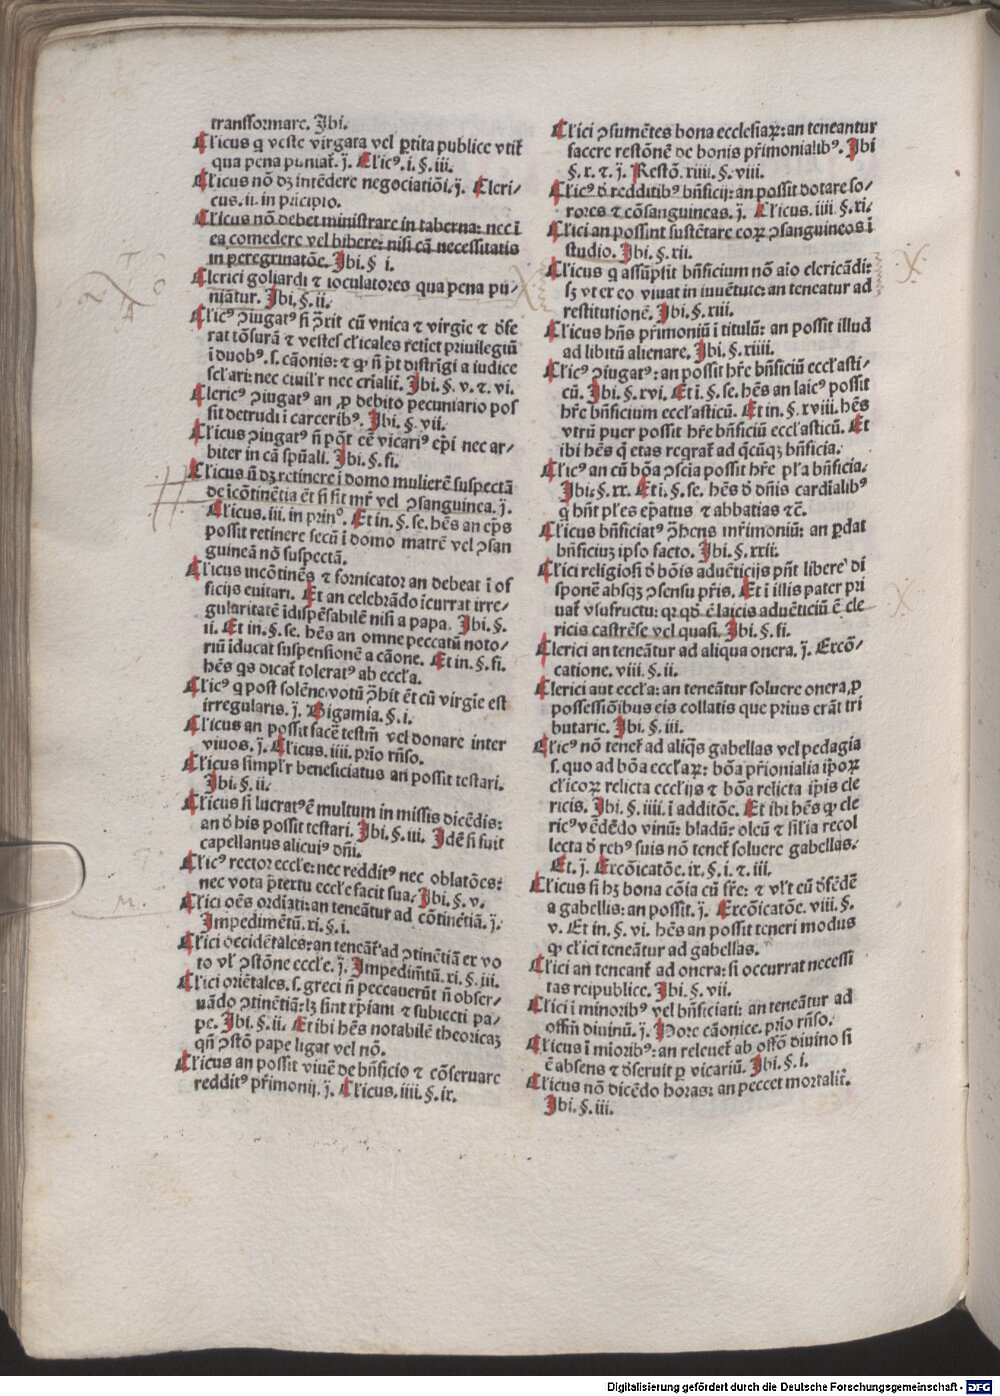 transformare. Jbi.
Cl'icus q̄ veste virgata vel ꝑtita publice vtiť
qua pena puniať. ȷ̄. Cl'icꝰ. i. §. iii.
Cl'icus nō dʒ intēdere negociatiōi. ȷ̄. Cleri-
cus. ii. in prīcipio.
Cl'icus nō debet ministrare in taberna: nec ī
ea comedere vel bibere: nisi cā necessitatis
in peregrinatōe. Jbi. § i.
Clerici goliardi ⁊ ioculatores qua pena pu-
niātur. Jbi. §. ii.
Cl'icꝰ ꝯiugatꝰ si ꝯ̄xit cū vnica ⁊ virgīe ⁊ d'fe
rat tōsurā ⁊ vestes cl'icales retīet priuilegiū
ī duobꝰ. s. cāonis: ⁊ ꝙ ñ p̄t distrīgi a iudice
sel'ari: nec ciuil'r nec crīaliť. Jbi. §. v. ⁊. vi.
Clericꝰ ꝯiugatꝰ an ꝓ debito pecuniario pos
sit detrudi ī carceribꝰ. Jbi. §. vii.
Cl'icus ꝯiugatꝰ ñ pōt eē vicariꝰ ep̄i nec ar-
biter in cā sp̄uali. Jbi. §. fi.
Cl'icus ñ dʒ retinere ī domo mulierē suspectā
de īcōtinētia ēt si sit mr̄ vel ꝯsanguinea. ȷ̄.
Cl'icus. iii. in prīnº. Et in. §. se. hēs an ep̄s
possit retinere secū ī domo matrē vel ꝯsan
guineā nō suspectā.
Cl'icus incōtinēs ⁊ fornicator an debeat ī of
ficijs euitari. Et an celebrādo īcurrat irre-
gularitatē īdispēsabilē nisi a papa. Jbi. §.
ii. Et in. §. se. hēs an omne peccatū noto-
riū īducat suspensionē a cāone. Et in. §. fi.
hēs qs dicať toleratꝰ ab eccl'a.
Cl'icꝰ q̄ post solēne votū ꝯ̄hit ēt cū virgīe est
irregularis. ȷ̄. Bigamia. §. i.
Cl'icus an possit facē testm̄ vel donare inter
viuos. ȷ̄. Cl'icus. iiii. prīo rn̄so.
Cl'icus simpl'r beneficiatus an possit testari.
Jbi. §. ii.
Cl'icus si lucratꝰ ē multum in missis dicēdis:
an d' his possit testari. Jbi. §. iii. Jdē si fuit
capellanus alicuiꝰ dn̄i.
Cl'icꝰ rector eccl'e: nec redditꝰ nec oblatōes:
nec vota p̄textu eccl'e facit sua. Jbi. §. v.
Cl'ici oēs ordīati: an teneātur ad cōtinētiā. ȷ̄.
Jmpedimētū. xi. §. i.
Cl'ici occidētales: an teneāť ad ꝯtinētiā ex vo
to vl' ꝯstōne eccl'e. ȷ̄. Jmpedim̄tū. xi. §. iii.
Cl'ici oriētales. s. greci ñ peccauerūt ñ obser-
uādo ꝯtinētiā: lʒ sint xp̄iani ⁊ subiecti pa-
pe. Jbi. §. ii. Et ibi hēs notabilē theoricaʒ
qn̄ ꝯstō pape ligat vel nō.
Cl'icus an possit viuē de bn̄ficio ⁊ cōseruare
redditꝰ pr̄imonij. ȷ̄. Cl'icus. iiii. §. ix.
Cl'ici ꝯsumētes bona ecclesiaꝝ: an teneantur
facere restōnē de bonis pr̄imonialibꝰ. Jbi
§. x. ⁊. ȷ̄. Restō. xiiii. §. viii.
Cl'icꝰ d' redditibꝰ bn̄ficij: an possit dotare so-
rores ⁊ cōsanguineas. ȷ̄. Cl'icus. iiii §. xi.
Cl'ici an possint sustētare eoꝝ ꝯsanguineos ī
studio. Jbi. §. xii.
Cl'icus q̄ assūpsit bn̄ficium nō aīo clericādi:
sʒ vt ex eo viuat in iuuētute: an teneatur ad
restitutionē. Jbi. §. xiii.
Cl'icus hn̄s pr̄imoniū ī titulū: an possit illud
ad libitū alienare. Jbi. §. xiiii.
Cl'icꝰ ꝯiugatꝰ: an possit hr̄e bn̄ficiū eccl'asti-
cū. Jbi. §. xvi. Et ī. §. se. hēs an laicꝰ possit
hr̄e bn̄ficium eccl'asticū. Et in. §. xviii. hēs
vtrū puer possit hr̄e bn̄ficiū eccl'asticū. Et
ibi hēs q̄ etas reqrať ad qcūqʒ bn̄ficia.
Cl'icꝰ an cū bōa ꝯscia possit hr̄e pl'a bn̄ficia.
Jbi. §. xx. Et ī. §. se. hēs d' dn̄is cardīalibꝰ
q̄ hn̄t pl'es ep̄atus ⁊ abbatias ⁊c̄.
Cl'icus bn̄ficiatꝰ ꝯ̄hens mr̄imoniū: an ꝑdat
bn̄ficiuʒ ipso facto. Jbi. §. xxii.
Cl'ici religiosi d' bōis aduēticijs pn̄t libere dī
sponē absqʒ ꝯsensu pr̄is. Et ī illis pater pri
uať vsufructu: qr qd' ē laicis aduēticiū ē cle
ricis castrēse vel quasi. Jbi. §. fi.
Clerici an teneātur ad aliqua onera. ȷ̄. Excō-
catione. viii. §. ii.
Clerici aut eccl'a: an teneātur soluere onera ꝓ
possessiōibus eis collatis que prius erāt tri
butarie. Jbi. §. iii.
Cl'icꝰ nō teneť ad aliqs gabellas vel pedagia
s. quo ad bōa eccl'aꝝ: bōa pr̄ionialia ip̄oꝝ
cl'icoꝝ relicta eccl'ijs ⁊ bōa relicta ip̄is cle
ricis. Jbi. §. iiii. ī additōe. Et ibi hēs ꝙ cle
ricꝰ vēdēdo vinū: bladū: oleū ⁊ sīl'ia recol
lecta d' rebꝰ suis nō teneť soluere gabellas.
Et. ȷ̄. Excōicatōe. ix. §. i. ⁊. iii.
Cl'icus si hʒ bona cōia cū fr̄e: ⁊ vl't eū d'fēdē
a gabellis: an possit. ȷ̄. Excōicatōe. viii. §.
v. Et in. §. vi. hēs an possit teneri modus
ꝙ cl'ici teneātur ad gabellas.
Cl'ici an teneanť ad onera: si occurrat necessi
tas reipublice. Jbi. §. vii.
Cl'ici ī minoribꝰ vel bn̄ficiati: an teneātur ad
offm̄ diuinū. ȷ̄. Hore cāonice. prīo rn̄so.
Cl'icus ī mīoribꝰ: an releueť ab offō diuino si
ē absens ⁊ d'seruit ꝑ vicariū. Jbi. §. i.
Cl'icus nō dicēdo horas: an peccet mortaliť.
Jbi. §. iii.
Digitalisierung gefördert durch die Deutsche Forschungsgemeinschaft - DFG